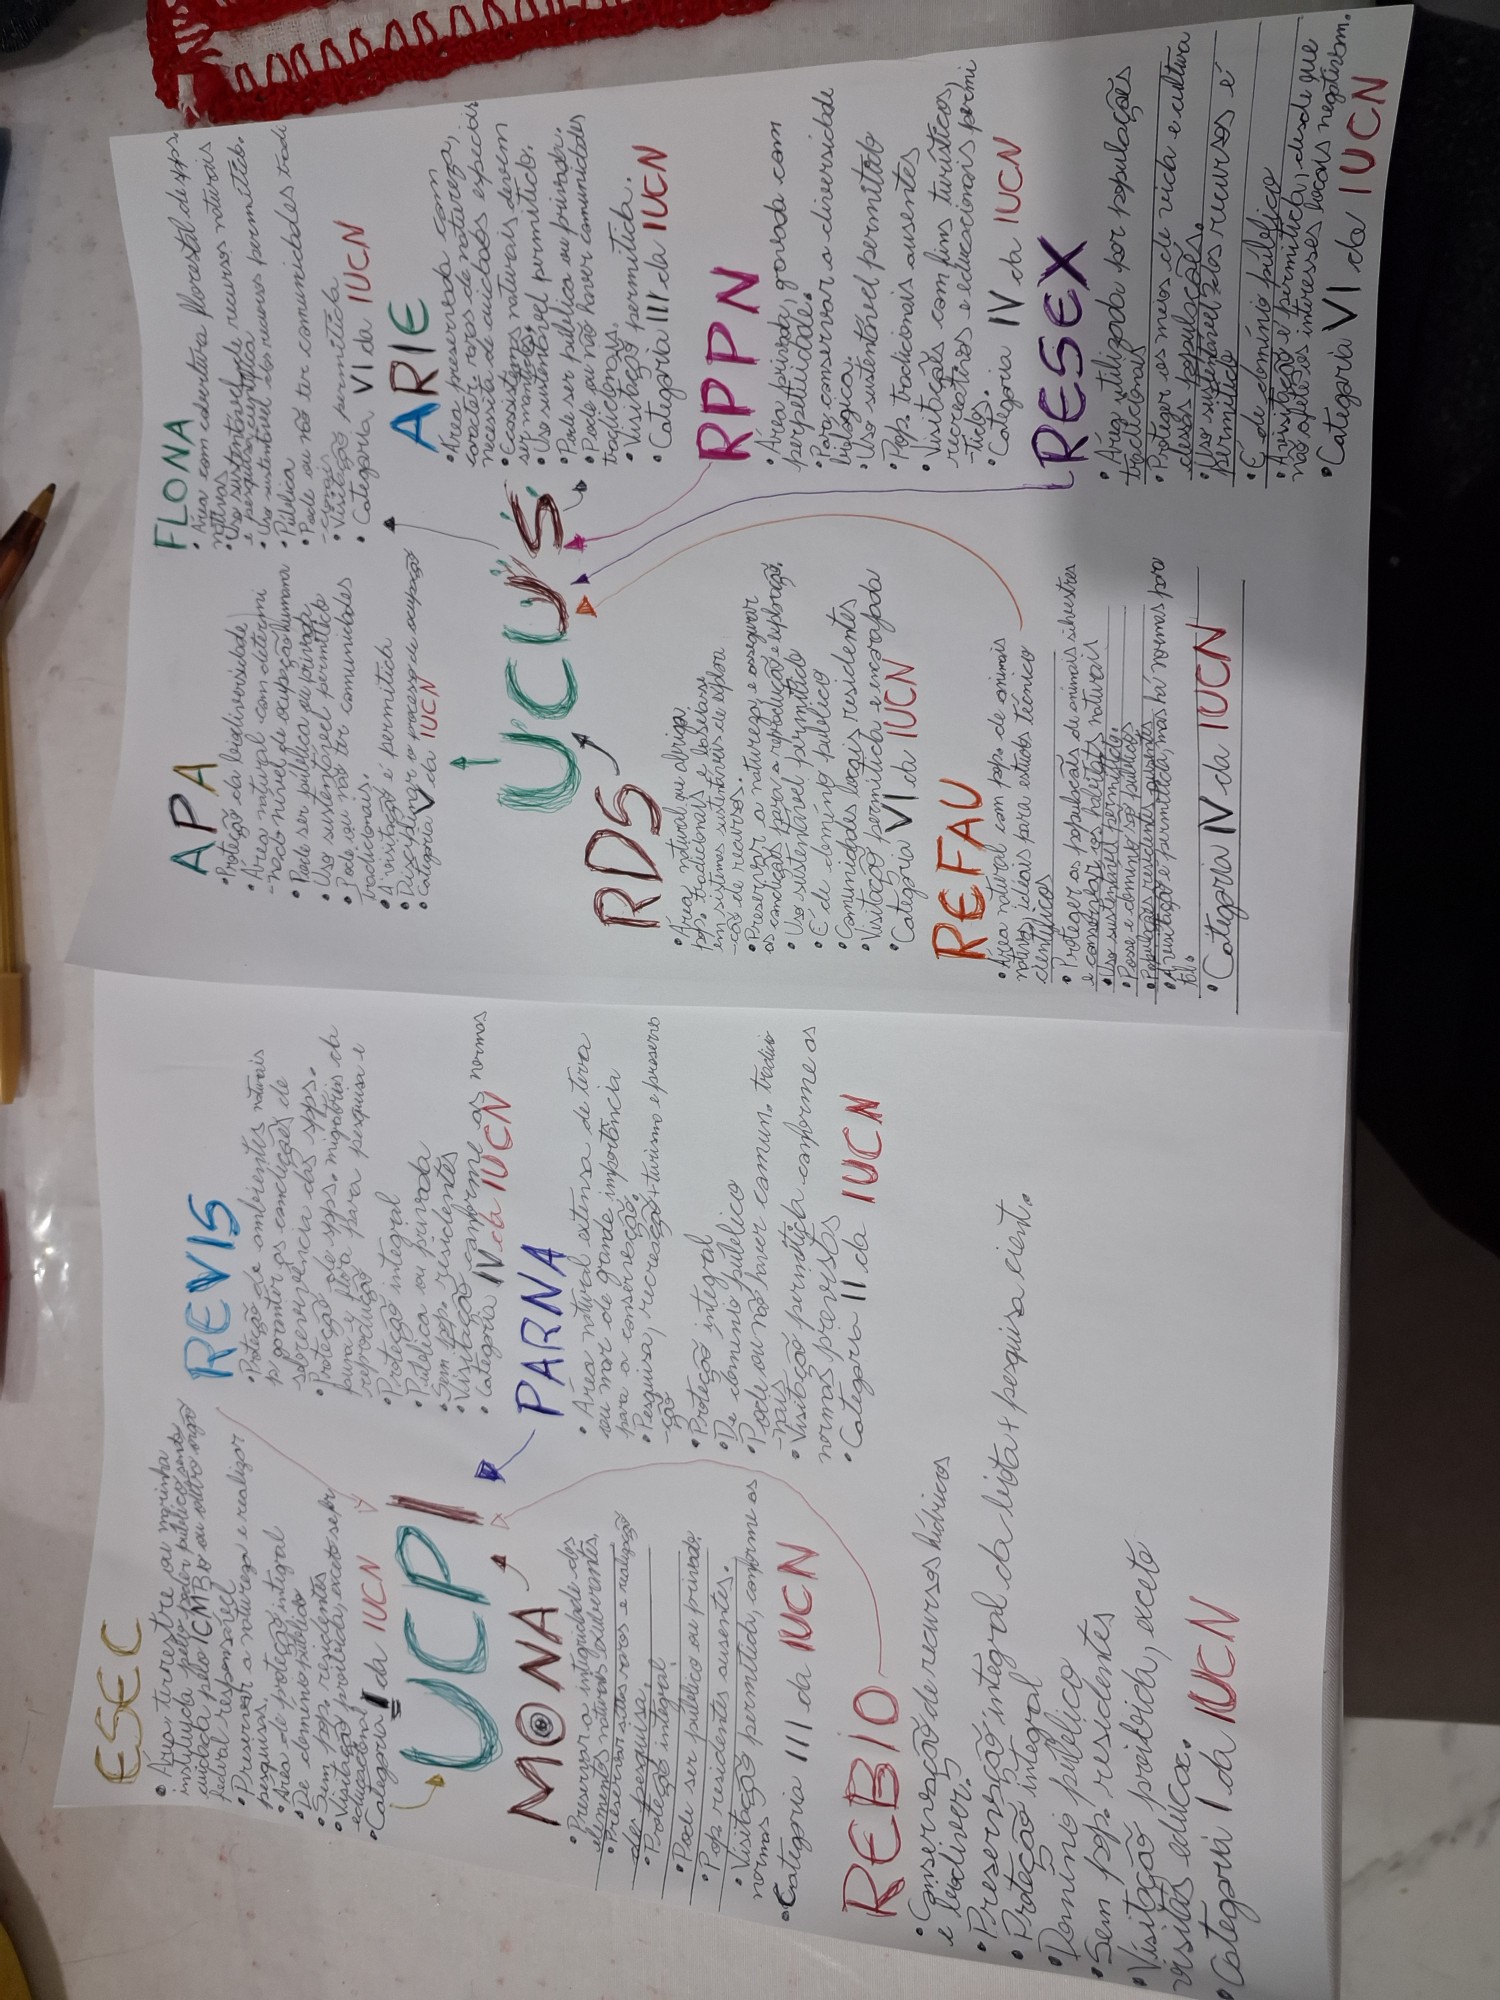 ESEC
• Área terrestre ou marinha
instituída pelo poder público sendo
cuidada pelo ICMBO ou outro orgão
federal responsável
• Preservar a natureza e realizar
pesquisas.
• Área de proteção integral
• De domínio público
• Sem pop. residentes
• Visitação proibida, exceto se for
educacional
• Categoria I da IUCN
REVIS
• Proteção de ambientes naturais
p/ garantir as condições de
sobrevivência das spps.
• Proteção de spps. migratórias da
fauna e flora para pesquisa e
reprodução
• Proteção integral
• Pública ou privada
• Sem pop. residentes
• Visitação conforme as normas
• Categoria IV da IUCN
UCPI
MONA
• Preservar a integridade dos
elementos naturais exuberantes,
• Preservar sítios raros e realização
de pesquisa.
• Proteção integral
• Pode ser público ou privado.
• Pop. residentes ausentes.
• Visitação permitida, conforme as
normas
• Categoria III da IUCN
PARNA
• Área natural extensa de terra
ou mar de grande importância
para a conservação.
• Pesquisa, recreação + turismo e preserva
-ção
• Proteção integral
• De domínio público
• Pode ou não haver comun. tradicio
-nais
• Visitação permitida conforme as
normas previstas
• Categoria II da IUCN
REBIO
• Conservação de recursos hídricos
e biodiver.
• Preservação integral da biota + pesquisa cient.
• Proteção integral
• Domínio público
• Sem pop. residentes
• Visitação proibida, exceto
visitas educac.
• Categoria I da IUCN
APA
• Proteção da biodiversidade
• Área natural com determi
-nado nível de ocupação humana
• Pode ser pública ou privada
• Uso sustentável permitido
• Pode ou não ter comunidades
tradicionais.
• A visitação é permitida
• Disciplinar o processo de ocupação
• Categoria V da IUCN
FLONA
• Área com cobertura florestal de spps.
nativas
• Uso sustentável de recursos naturais
e pesquisa científica
• Uso sustentável dos recursos permitido.
• Pública
• Pode ou não ter comunidades tradi
-cionais
• Visitação permitida
• Categoria VI da IUCN
UCUS
ARIE
• Área preservada com
caracter. raros de natureza,
necessita de cuidados especiais
• Ecossistemas naturais devem
ser mantidos.
• Uso sustentável permitido.
• Pode ser pública ou privada.
• Pode ou não haver comunidades
tradicionais.
• Visitação permitida.
• Categoria III da IUCN
RDS
• Área natural que abriga
pop. tradicionais e baseia-se
em sistemas sustentáveis de explora
-ção de recursos.
• Preservar a natureza e assegurar
as condições para a reprodução e exploração.
• Uso sustentável permitido
• É de domínio público
• Comunidades locais residentes
• Visitação permitida e encorajada
• Categoria VI da IUCN
RPPN
• Área privada, gravada com
perpetuidade.
• Para conservar a diversidade
biológica.
• Uso sustentável permitido
• Pop. tradicionais ausentes
• Visitação com fins turísticos,
recreativos e educacionais permi
-tidos.
• Categoria IV da IUCN
REFAU
• Área natural com pop. de animais
nativos, ideais para estudos técnico
científicos
• Proteger as populações de animais silvestres
e conservar os habitats naturais
• Uso sustentável permitido.
• Posse e domínio são públicos
• Populações residentes ausentes
• A visitação é permitida, mas há normas para
tal.
• Categoria IV da IUCN
RESEX
• Área utilizada por populações
tradicionais
• Proteger os meios de vida e cultura
dessas populações.
• Uso sustentável dos recursos é
permitido
• É de domínio público
• A visitação é permitida, desde que
não afete os interesses locais negativam.
• Categoria VI da IUCN